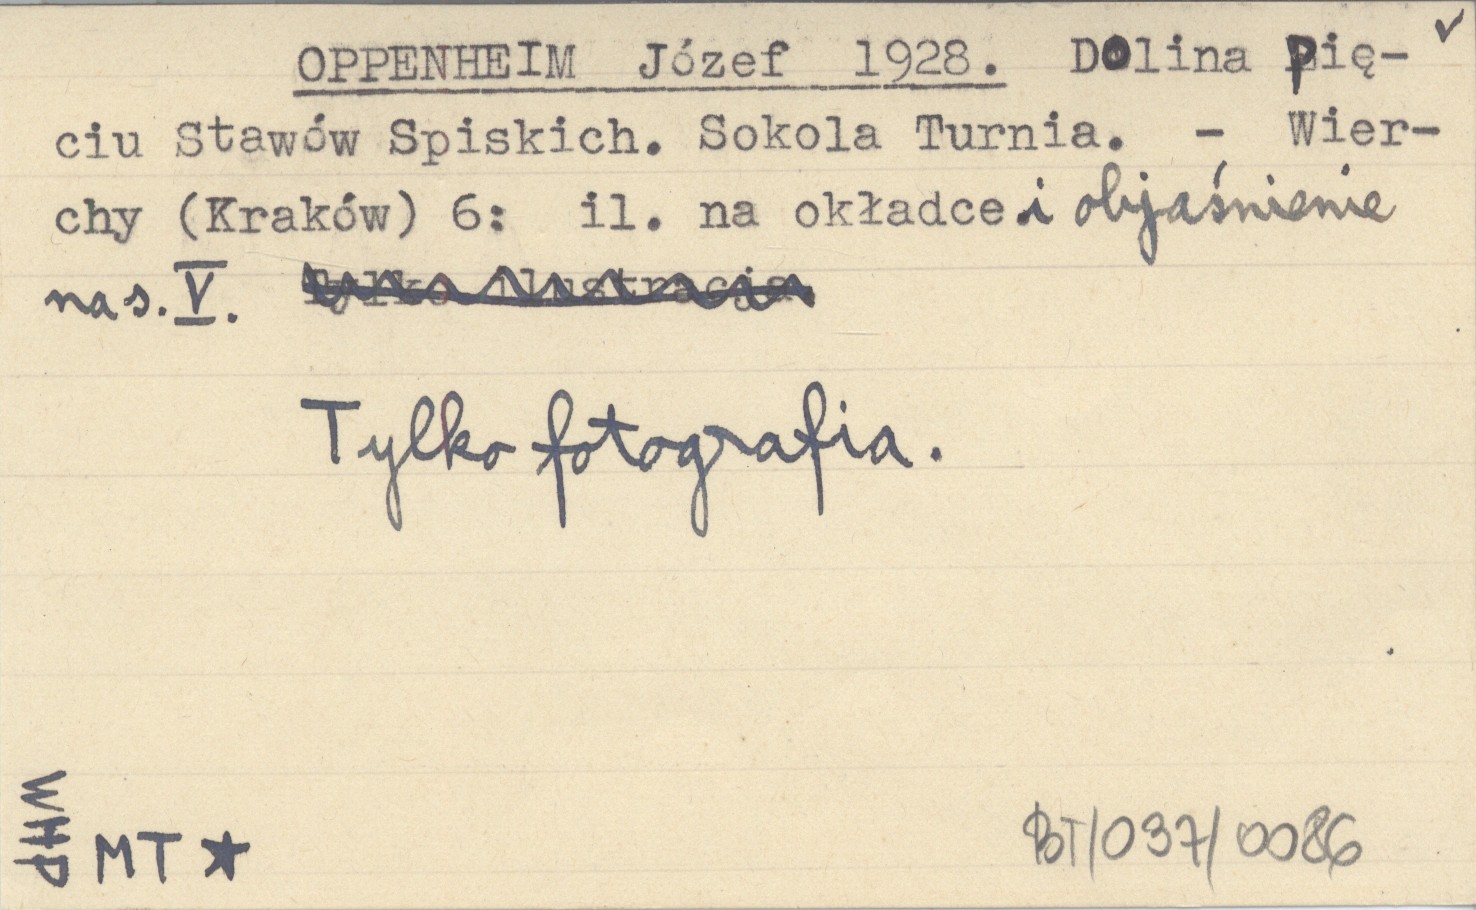 OPPENHEIM Józef 1928. Dolina Pię- ✓
ciu Stawów Spiskich. Sokola Turnia. - Wier-
chy (Kraków) 6: il. na okładce i objaśnienie
na s. V. Tylko ilustracja.
Tylko fotografia.
WHP
MT ★
BT/037/0086